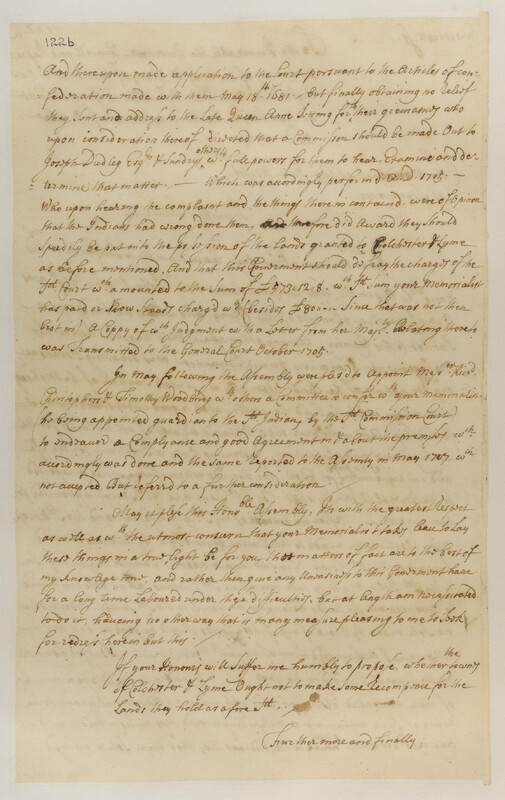 122b
And thereupon made application to the Court pursuant to the Articles of con-
federation made with them May 18th 1681 - But finally obtaining no releif
they Sent and address to the Late Queen Anne Setting forth there greivances who
upon consideration thereof directed that a Commission should be made Out to
Joseph Dudley Esqr & Sundry others wth full powers for them to hear Examine and de-
-termine, that matter. — Which was accordingly performed 1705 —
Who upon hearing the complaint and the things there in containd were of Opinion
that the Indians had wrong done them, and therefore did Award they should
Speedily be put into the possession of the Lands granted to Colchester & Lyme
as before mentioned. And that this Goverment should defray the charges of the
sd Court wch amounted to the Sum of £573:12:8. wch sd Sum your Memorialist
has paid or Now Stands charg'd wth (besides £800 Since that was not then
cast in) A Coppy of wch Judgment with a Letter from her Majty Relating thereto
was Transmitted to the General Court October 1705.
In May following the Assembly were pleasd to Appoint Messrs Richd
Christophers & Timothy Woodbrig wth others a Committee to confer wth your memorialist
he being appointed guardian to the sd Indians by the sd Commission Court
to endeavor a Complyance and good Agreement in & about the premises, wch
accordingly was done and the Same Reported to the Assembly in May 1707. wch
not accepted But referrd to a further consideration
May it please this Honoble Assembly, Its with the greatest Respect
as well as wth the utmost concern that your Memorialist takes leave to Lay
these things in a true Light be for you, that matters of fact are to the best of
my knowledge true, and rather then give any Uneasiness to this Goverment have
for a Long time Laboured under these difficulties, but at Length am necessitated
to do it, haveing no other way that is in any measure pleasing to me to Seek
for redress herein but this
If your Honours will Suffer me humbly to propose, whether the towns
of Colchester & Lyme Ought not to make some Recompence for the
Lands they hold as afore sd
Furthermore and finally